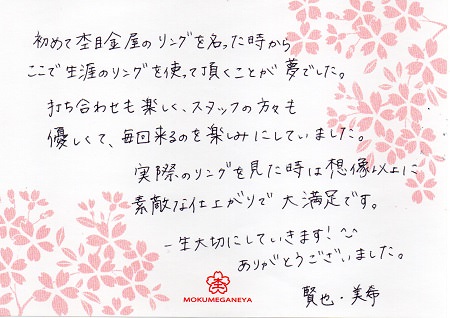 初めて杢目金屋のリングを知った時から
ここで生涯のリングを使って頂くことが夢でした。
打ち合わせも楽しく、スタッフの方々も
優しくて、毎回来るのを楽しみにしていました。
実際のリングを見た時は想像以上に
素敵な仕上がりで大満足です。
一生大切にしていきます!
ありがとうございました。
賢也・美希
MOKUMEGANEYA